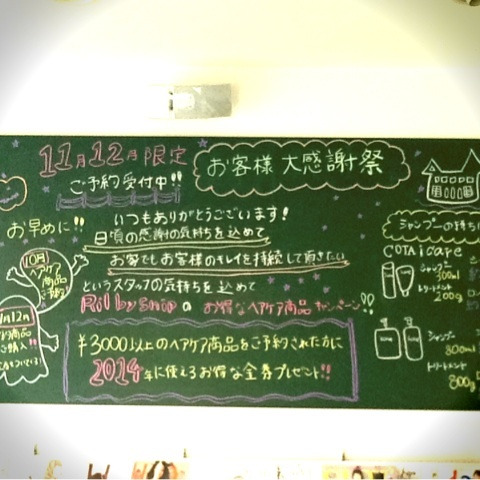 11月12月限定
ご予約受付中!!
お客様 大感謝祭
お早めに!!
いつもありがとうございます!
日頃の感謝の気持ちを込めて
お家でもお客様のキレイを持続して頂きたい
というスタッフの気持ちを込めて
Ril by snipの お得なヘアケア商品 キャンペーン!!
¥3000以上のヘアケア商品をご予約された方に
2014年に使えるお得な金券プレゼント!!
10月
ヘアケア
商品
ご予約
12月
商品
ご購入!!
シャンプーの持ち
COTA i care
シャンプー
300ml
トリートメント
200g
シャンプー
800ml
トリートメント
800g